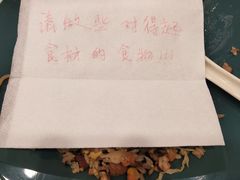 请做些对得起
食材的食物!!!